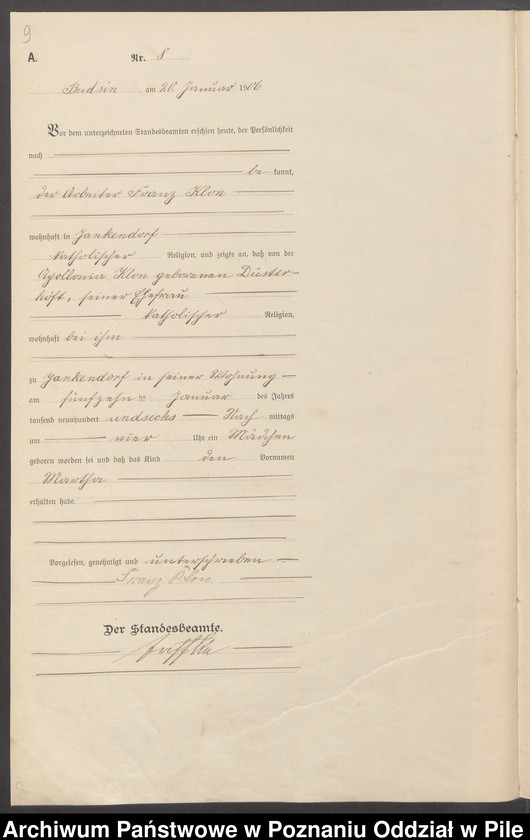 9
A.
Nr. 8
Budsin am 20. Januar 1906
Vor dem unterzeichneten Standesbeamten erschien heute, der Persönlichkeit
nach
be kannt,
der Arbeiter Franz Klon
wohnhaft in Jankendorf
katholischer Religion, und zeigte an, daß von der
Apollonia Klon geborenen Düster-
höft, seiner Ehefrau
katholischer Religion,
wohnhaft bei ihm
zu Jankendorf in seiner Wohnung
am fünfzehn ten Januar des Jahres
tausend neunhundert undsechs Nach mittags
um vier Uhr ein Mädchen
geboren worden sei und daß das Kind den Vornamen
Martha
erhalten habe
Vorgelesen, genehmigt und unterschrieben
Franz Klon
Der Standesbeamte.
Archiwum Państwowe w Poznaniu Oddział w Pile